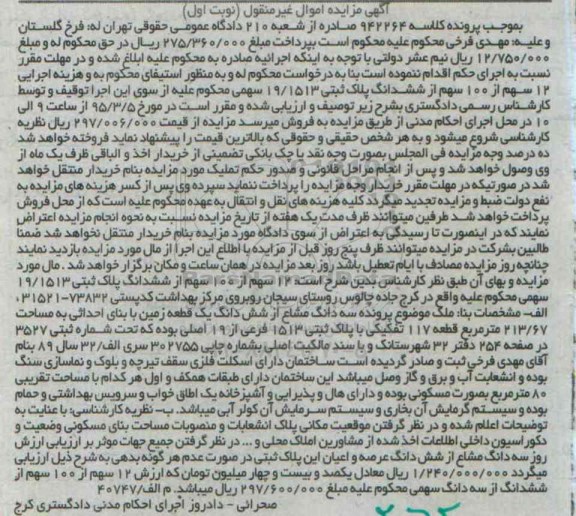 آگهی مزایده اموال غیرمنقول (نوبت اول)
بموجب پرونده کلاسه ۹۴۲۲۶۴ صادره از شعبه ۲۱۰ دادگاه عمومی حقوقی تهران له: فرخ گلستان
و علیه: مهدی فرخی محکوم علیه محکوم است بپرداخت مبلغ ۲۷۵/۳۶۰/۰۰۰ ریال در حق محکوم له و مبلغ
۱۲/۷۵۰/۰۰۰ ریال نیم عشر دولتی با توجه به اینکه اجرائیه صادره به محکوم علیه ابلاغ شده و در مهلت مقرر
نسبت به اجرای حکم اقدام ننموده است بنا به درخواست محکوم له و به منظور استیفای محکوم به و هزینه اجرایی
۱۲ سهم از ۱۰۰ سهم از ششدانگ پلاک ثبتی ۱۹/۱۵۱۳ سهمی محکوم علیه از سوی این اجرا توقیف و توسط
کارشناس رسمی دادگستری بشرح زیر توصیف و ارزیابی شده و مقرر است در مورخ ۹۵/۳/۵ از ساعت ۹ الی
۱۰ در محل اجرای احکام مدنی از طریق مزایده به فروش میرسد مزایده از قیمت ۲۹۷/۰۰۶/۰۰۰ ریال نظریه
کارشناسی شروع میشود و به هر شخص حقیقی و حقوقی که بالاترین قیمت را پیشنهاد نماید فروخته خواهد شد
ده درصد وجه مزایده فی المجلس بصورت وجه نقد یا چک بانکی تضمینی از خریدار اخذ و الباقی ظرف یک ماه از
وی وصول خواهد شد و پس از انجام مراحل قانونی و صدور حکم تملیک مورد مزایده بنام خریدار منتقل خواهد
شد در صورتیکه در مهلت مقرر خریدار وجه مزایده را پرداخت ننماید سپرده وی پس از کسر هزینه های مزایده به
نفع دولت ضبط و مزایده تجدید میگردد کلیه هزینه های نقل و انتقال به عهده محکوم علیه است که از محل فروش
پرداخت خواهد شد طرفین میتوانند ظرف مدت یک هفته از تاریخ مزایده نسبت به نحوه انجام مزایده اعتراض
نمایند که در اینصورت تا رسیدگی به اعتراض از سوی دادگاه مورد مزایده بنام خریدار منتقل نخواهد شد ضمنا
طالبین بشرکت در مزایده میتوانند ظرف پنج روز قبل از مزایده با اطلاع این اجرا از مال مورد مزایده بازدید نمایند
چنانچه روز مزایده مصادف با ایام تعطیل باشد روز بعد مزایده در همان ساعت و مکان برگزار خواهد شد . مال مورد
مزایده و بهای آن طبق نظر کارشناس بدین شرح است: ۱۲ سهم از ۱۰۰ سهم از ششدانگ پلاک ثبتی ۱۹/۱۵۱۳
سهمی محکوم علیه واقع در کرج جاده چالوس روستای سیجان روبروی مرکز بهداشت کدپستی ۷۳۸۳۲-۳۱۵۲۱ .
الف- مشخصات بنا: ملک موضوع پرونده سه دانگ مشاع از شش دانگ یک قطعه زمین با بنای احداثی به مساحت
۲۱۳/۶۷ مترمربع قطعه ۱۱۷ تفکیکی با پلاک ثبتی ۱۵۱۳ فرعی از ۱۹ اصلی بوده که تحت شماره ثبتی ۳۵۲۷
در صفحه ۲۵۴ دفتر ۳۲ شهرستانک و با سند مالکیت اصلی بشماره چاپی ۳۰۲۷۵۵ سری الف/۳۲ سال ۸۹ بنام
آقای مهدی فرخی ثبت و صادر گردیده است ساختمان دارای اسکلت فلزی سقف تیرچه و بلوک و نماسازی سنگ
بوده و انشعابت آب و برق و گاز وصل میباشد این ساختمان دارای طبقات همکف و اول هر کدام با مساحت تقریبی
۸۰ مترمربع بصورت مسکونی بوده و دارای هال و پذیرایی و آشپزخانه یک اطاق خواب و سرویس بهداشتی و حمام
بوده و سیستم گرمایش آن بخاری و سیستم سرمایش آن کولر آبی میباشد. ب- نظریه کارشناسی: با عنایت به
توضیحات اعلام شده و در نظر گرفتن موقعیت مکانی پلاک انشعابات و منصوبات مساحت بنای مسکونی وضعیت و
دکوراسیون داخلی اطلاعات اخذ شده از مشاورین املاک محلی و ... در نظر گرفتن جمیع جهات موثر بر ارزیابی ارزش
روز سه دانگ مشاع از شش دانگ عرصه و اعیان این پلاک ثبتی در صورت عدم هر گونه بدهی به شرح ذیل ارزیابی
میگردد ۱/۲۴۰/۰۰۰/۰۰۰ ریال معادل یکصد و بیست و چهار میلیون تومان که ارزش ۱۲ سهم از ۱۰۰ سهم از
ششدانگ از سه دانگ سهمی محکوم علیه مبلغ ۲۹۷/۶۰۰/۰۰۰ ریال میباشد. م الف/۴۰۷۴۷
صحرائی - دادروز اجرای احکام مدنی دادگستری کرج